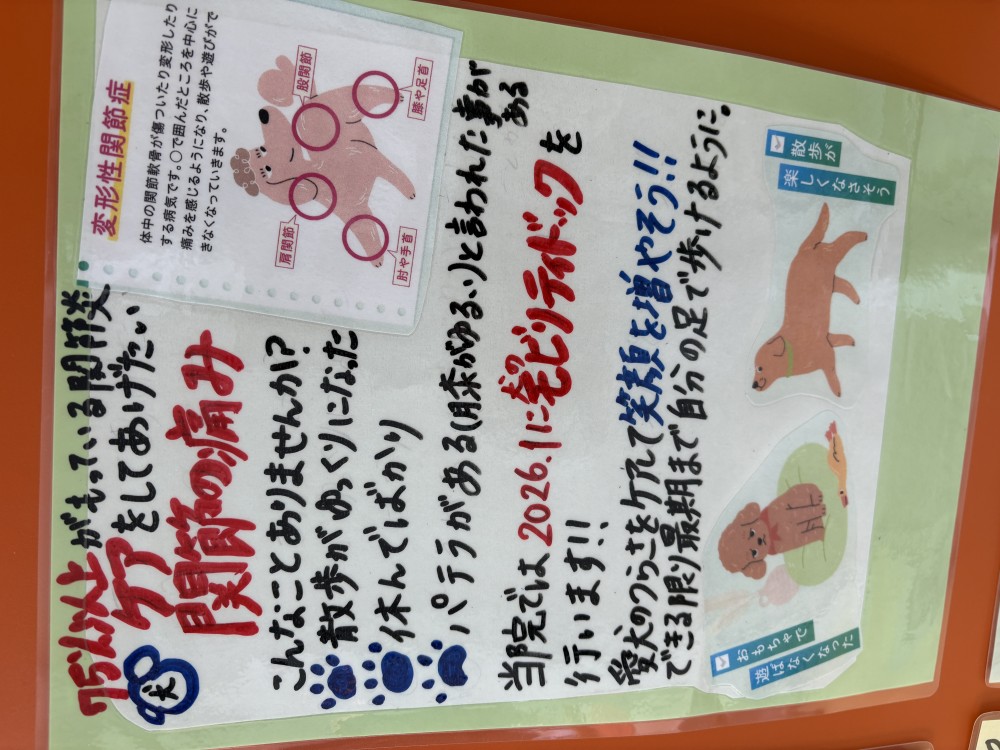 犬
75%以上がもっている関節炎
ケアをしてあげたい
関節の痛み
変形性関節症
体中の関節軟骨が傷ついたり変形したり
する病気です。〇で囲んだところを中心に
痛みを感じるようになり、散歩や遊びがで
きなくなっていきます。
股関節
膝や足首
肩関節
肘や手首
こんなことありませんか!?
散歩がゆっくりになった
休んでばかり
パテラがある(膝がゆるい)と言われた事がある
当院では2026.1に犬のモビリティドックを
行います!!
愛犬のつらさをケアして笑顔を増やそう!!
できる限り最期まで自分の足で歩けるように。
おもちゃで
遊ばなくなった
散歩が
楽しくなさそう